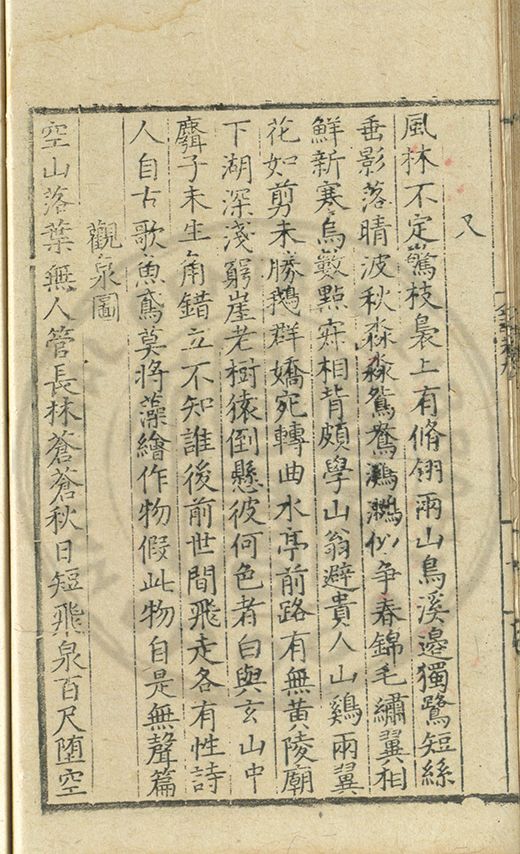 又
風林不定驚枝裊上有脩翎兩山鳥溪邊獨鷺短絲
垂影落晴波秋淼淼鴛鴦鸂鶒似爭春錦毛繡翼相
鮮新寒烏數點寂相背頗學山翁避貴人山鷄兩翼
花如剪未勝鵝群嬌宛轉曲水亭前路有無黄陵廟
下湖深淺窮崖老樹猿倒懸彼何色者白與玄山中
麛子未生角錯立不知誰後前世間飛走各有性詩
人自古歌魚鳶莫將藻繪作物假此物自是無聲篇
觀泉圖
空山落葉無人管長林蒼蒼秋日短飛泉百尺墮空